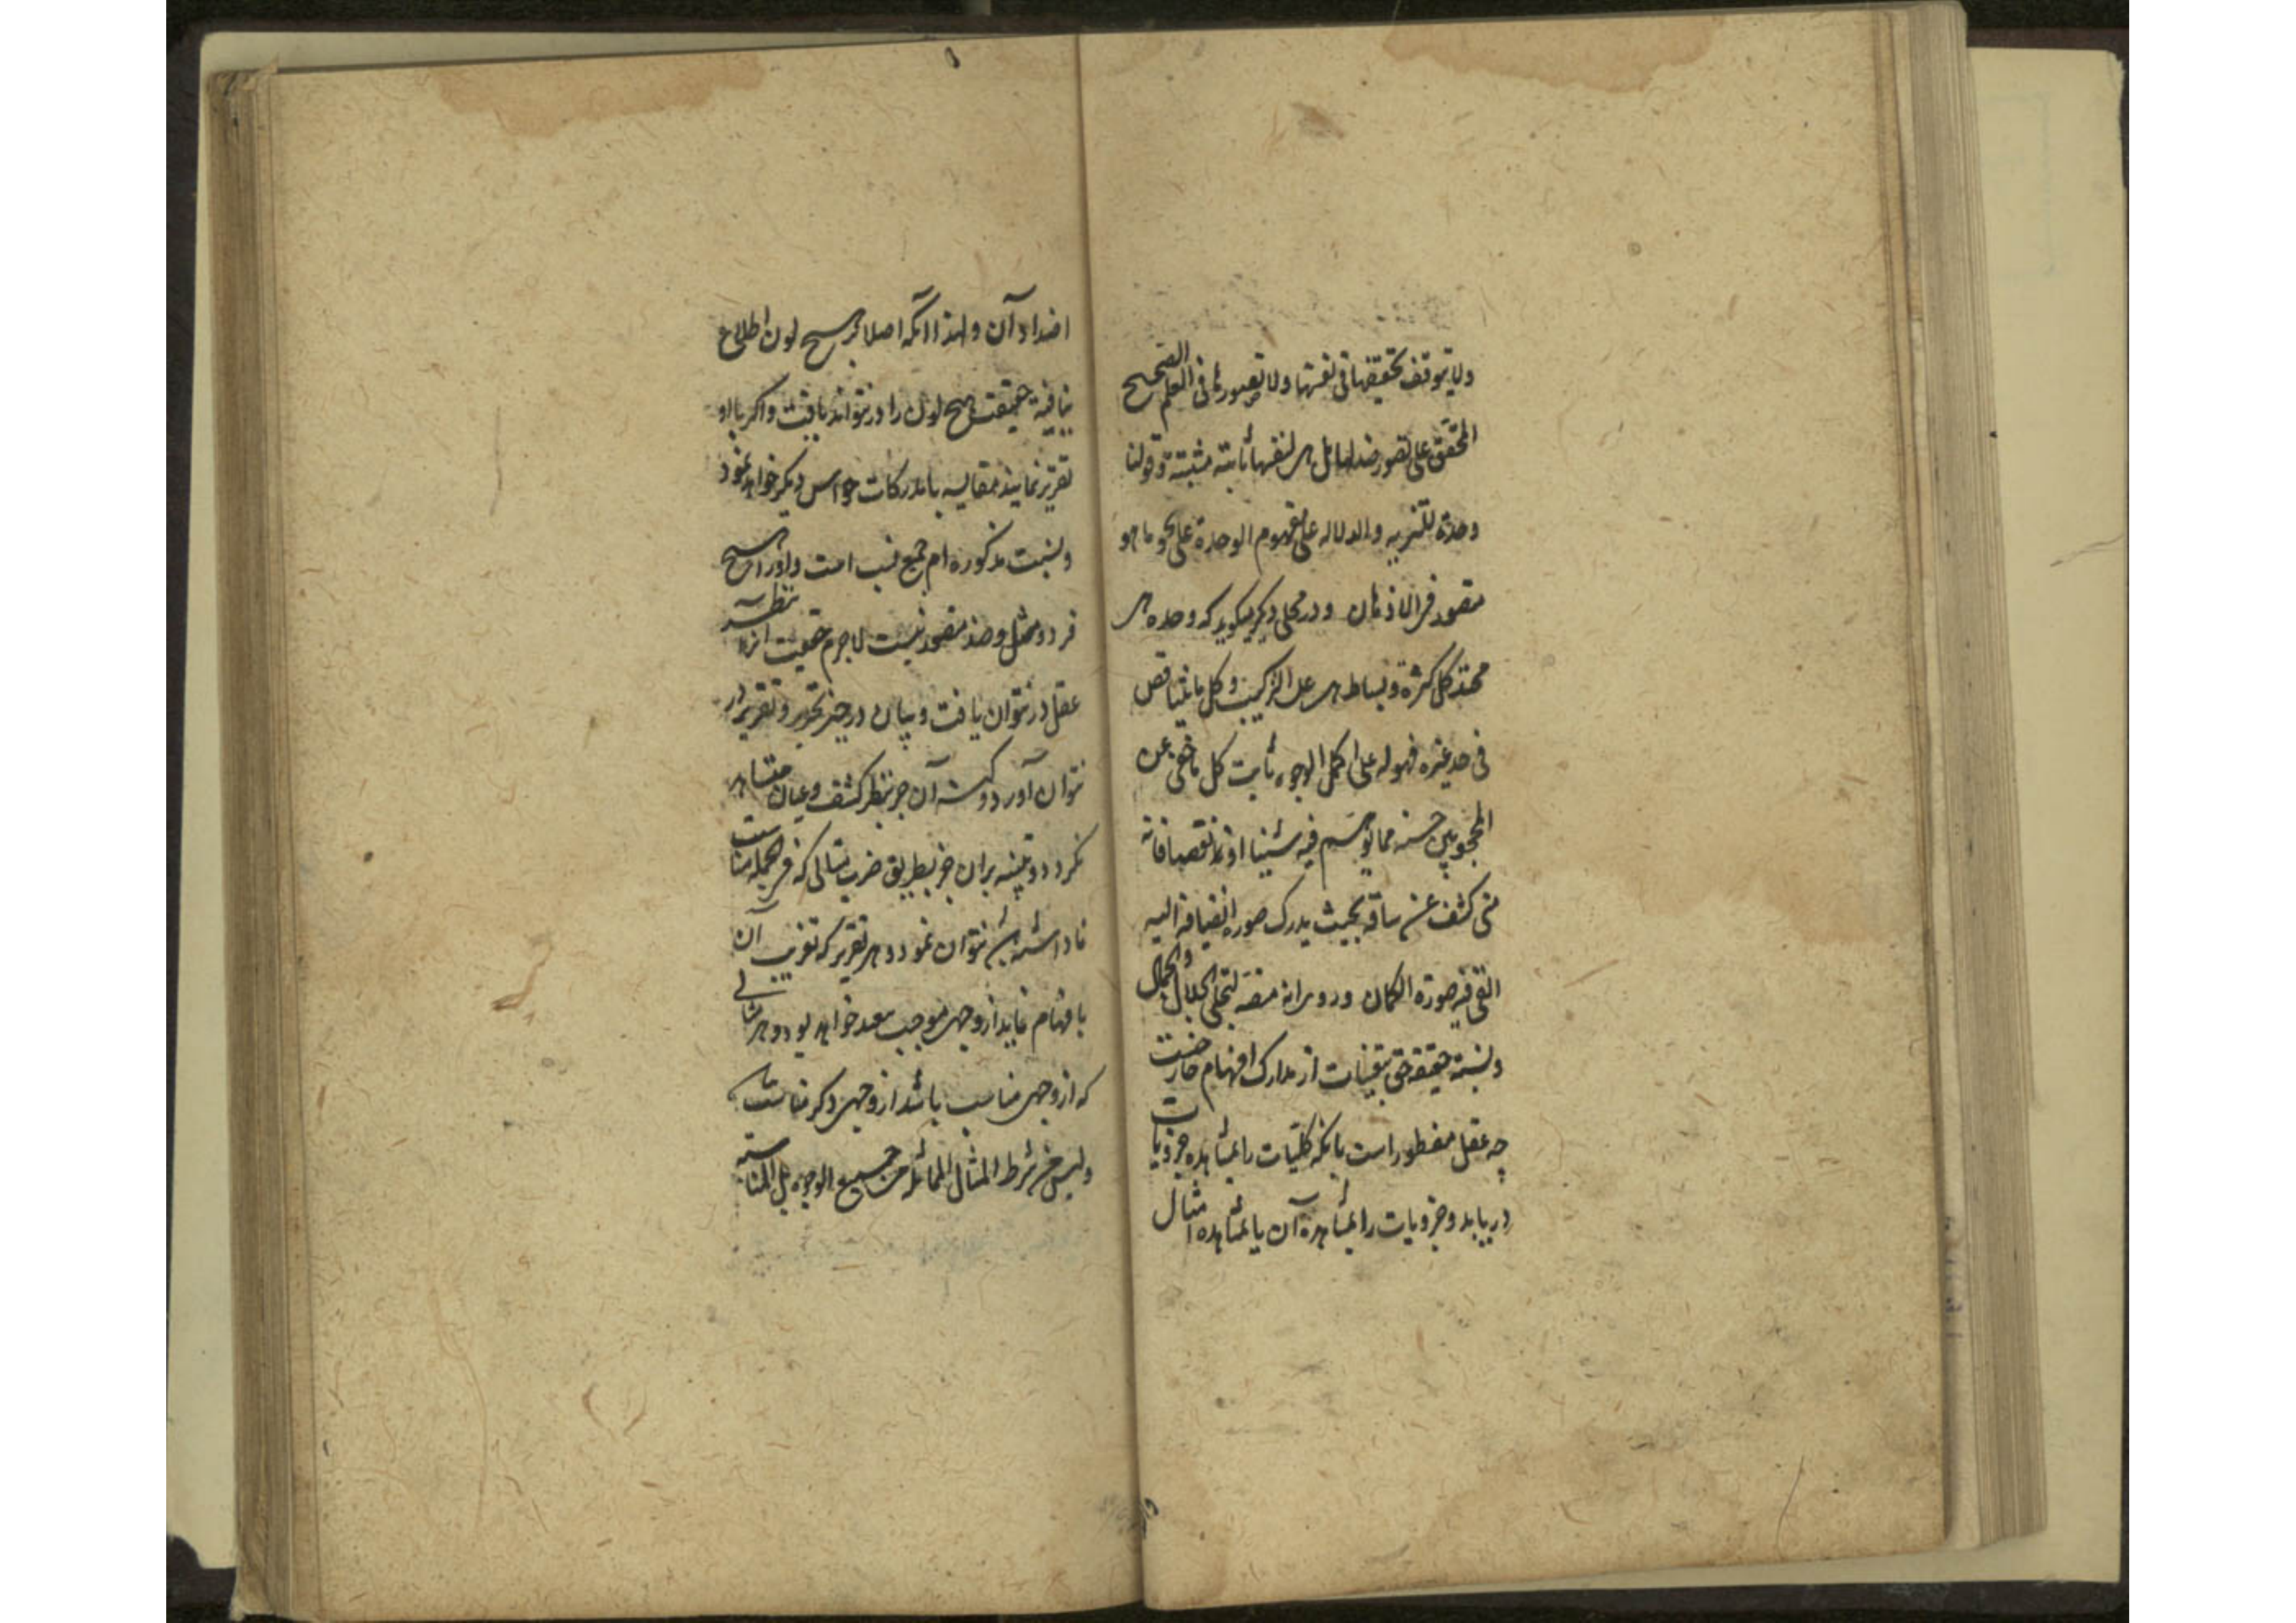 ولا یتوقف تحققها فی نفسها ولا تصورها فی العلم الصحیح
المحقق علی تصور ضد لها بل هی لنفسها ثابتة مثبتة وقولنا
وحدة للتنزیه والدلاله علی مفهوم الوحدة علی نحو ما هو
متصور فی الاذهان ودر محلی دیگر میکوید که وحده هی
محتد کل کثرة وبساطه هی عل الترکیب وکل ما یتناقص
فی حد غیره فهو له علی اکمل الوجوه ثابت کل ما خفی عن
المحجوبین حسنه مما توسم فیه شینا او نقصا فانه
متی کشف عن ساقه بحیث یدرک صورة انضیافه الیه
الفی فیه صورة الکمال وروی انه منصه لتجلی الجلال والجمال
ونسبة حقیقه حق بتعینات از مدارک افهام خارجست
چه عقل مفطور است بانکه کلیات را بمشاهده جزویات
دریابد وجزویات را بمشاهدة آن یا بمشاهده امثال
اضداد آن ولهذا انکه اصلا بر هیچ لون اطلاع
نیافته حقیقت هیچ لون را در نتواند یافت واکر با او
تقریر نمایند مقایسه با مدرکات حواس دیکر خواهد نمود
ونسبت مذکوره ام جمیع نسب است واورا هیچ
فرد ومثل وضد متصور نیست لاجرم حقیقت انرا بنظر
عقل در نتوان یافت وبیان در حیز تحریر وتقریر در
نتوان آورد وکنه آن جز بنظر کشف وعیان مشاهد
نکردد وتنبیه بران جز بطریق ضرب مثالی که فی الجمله مناسبت
با داشته باشد نتوان نمود وهر تقریر که تقریب آن
بافهام نماید از وجهی موجب بعد خواهد بود وهر مثالی
که از وجهی مناسب باشد از وجهی دکر نامناسب
ولیس من شرط المثال المماثلة من جمیع الوجوه بل المناسبة